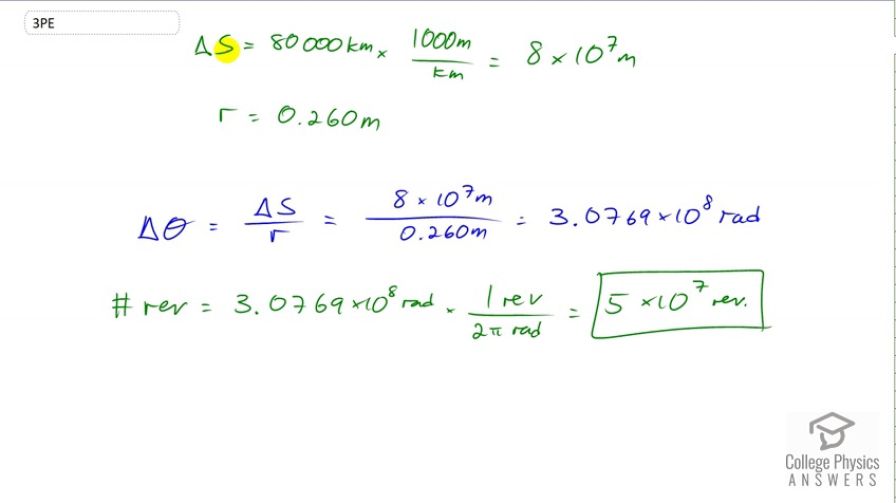 3PE
ΔS = 80 000 km × 1000m / km = 8 × 10⁷ m
r = 0.260m
Δθ = ΔS / r = 8 × 10⁷ m / 0.260m = 3.0769 × 10⁸ rad
# rev = 3.0769 × 10⁸ rad · 1 rev / 2π rad = 5 × 10⁷ rev.
College Physics
ANSWERS